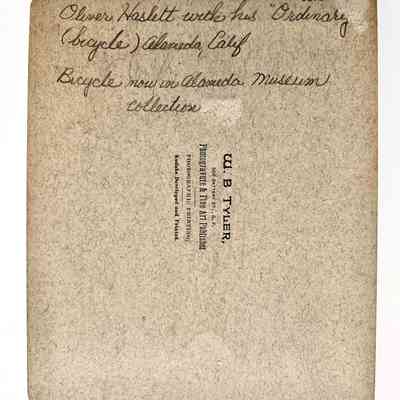 Oliver Haslett with his "Ordinary
(bicycle) Alameda, Calif
Bicycle now in Alameda Museum
collection
W. B TYLER,
Photogravure & Fine Art Publisher
PHOTOGRAPHIC PRINTING.
Kodaks Developed and Printed.